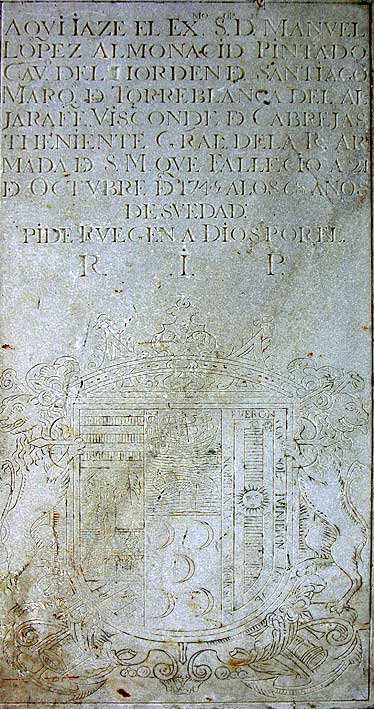 AQVI IAZE EL EXMO. SOR. S. D. MANVEL
LOPEZ ALMONACID PINTADO
CAV. DEL HORDEN D. SANTIAGO
MARQ. D. TORREBLANCA DEL AL
JARAFE, VISCONDE D CABREJAS
THENIENTE GRAL. DE LA R. AR
MADA D. S. M. QVE FALLECIO A 21
D OCTVBRE D 1745 A LOS 68 AÑOS
DE SV EDAD.
PIDE RVEGEN A DIOS POR EL
R. I. P.
FVERON